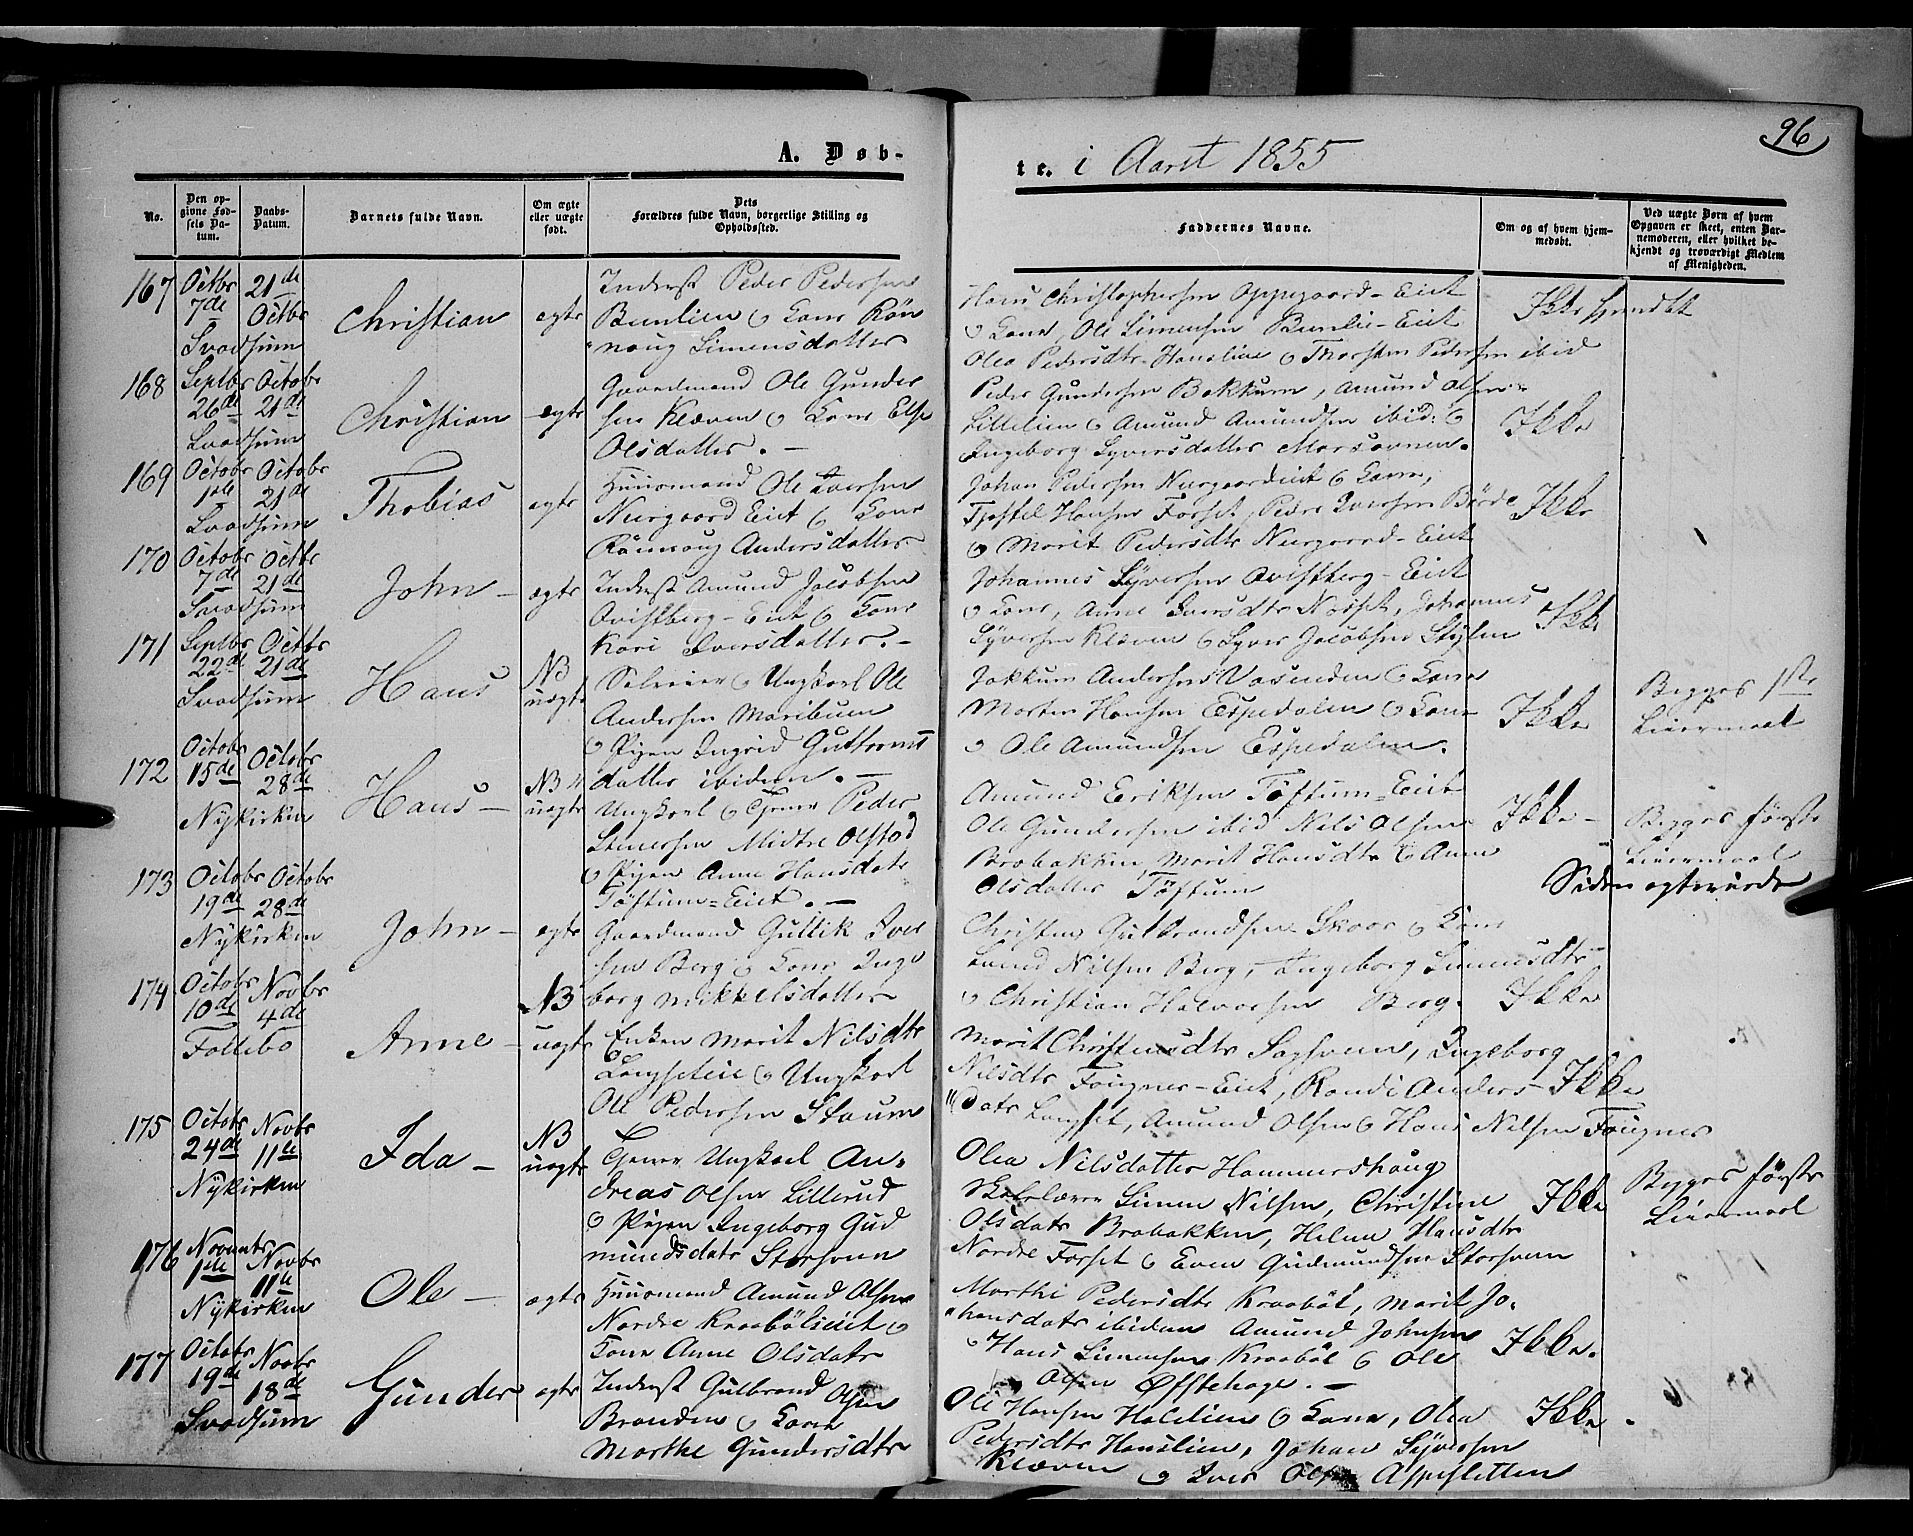 96
A. Døb-
te. i Aaret 1855
No.
Den op-
givne Fød-
sels Da-
tum.
Daabs-
Datum.
Barnets fulde Navn.
Om ægte
eller uægte
født.
Dets
Forældres fulde Navn, borgerlige Stilling og
Opholdssted.
Faddernes Navne.
Om og af hvem hjem-
medøbt.
Ved uægte Børn af hvem
Opgaven er skeet, enten Bar-
nemoderen, eller hvilket be-
kjendt og troværdigt Medlem
af Menigheden.
167
Octbr
7de
21de
Octbr
Svadsum
Christian
egte
Inderst Peder Pedersen
Bunlien & Kone Rön
noug Simensdatter
Hans Christophersen Oppegaard-Eiet
& Kone, Ole Simensen Bunlie-Eiet
Olea Pedersdtr Hanslien & Thorsten Pedersen ibid
Ikke
168
Septbr
26de
Octobr
21de
Svadsum
Christian
egte
Gaardmand Ole Gunder
sen Klæven & Kone Else
Olsdatter.
Peder Gundersen Bekkum, Amund Olsen
Lillelien & Amund Amundsen ibid: &
Ingeborg Syversdatter
Ikke
169
Octobr
1ste
Octobr
21de
Svadsum
Thobias
egte
Huusmand Ole Iversen
Nirgaard Eiet & Kone
Rönnoug Andersdatter
Johan Pedersen Nurgaardeiet & Kone,
Hansen Forset, Peder Iversen
& Marit Pedersdtr Nurgaard-Eiet
Ikke
170
Octobr
7de
Octbr
21de
Svadsum
John
egte
Inderst Amund Jacobsen
Qvistberg-Eiet & Kone
Kari Iversdatter.
Johannes Syversen Qvistberg-Eiet
& Kone, Anne Iversdtr Johannes
Syversen Klæven & Syver Jacobsen
Ikke
171
Septbr
22de
Octbr
21de
Svadsum
Hans
NB
uegte
Selveier & Ungkarl Ole
Andersen Maribuen
& Pigen Ingrid Guttorms
datter ibidem.
Jakkum Andersen Vasenden & Kone
Morten Hansen Espedalen & Kone
& Ole Amundsen Espedalen.
Ikke
Begges 1ste
Leiermaal
172
Octobr
15de
Octobr
28de
Nykirken
Hans
NB
uegte
Ungkarl & Gjener Peder
Steenersen Midtre Olstad
& Pigen Anne Hansdatr
Töftum-Eiet.
Amund Eriksen Töftum-Eiet
Ole Gundersen ibid Nils Olsen
Brobakken Marit Hansdtr & Anne
Olsdatter Töftum
Ikke
Begges første
Leiermaal
Siden egteviede
173
Octobr
19de
Octobr
28de
Nykirken
John
egte
Gaardmand Guttik Iver
sen Berg & Kone Inge
borg Mikkelsdatter
Christen Gulbrandsen Skaar & Kone
Nilsen Berg, Ingeborg Simensdtr
& Christian Halvorsen Berg.
Ikke
174
Octobr
10de
Novbr
4de
Follebo
Anne
NB
uegte
Enken Marit Nilsdtr
Langseteie & Ungkarl
Ole Pedersen Staum
Marit Christensdtr Ingeborg
Nilsdtr Fougner-Eiet, Randi Anders
datr Langset, Amund Olsen & Hans Nilsen Fougner
Ikke
175
Octobr
24de
Novbr
11te
Nykirken
Ida
NB
uegte
Gjener Ungkarl An-
dreas Olsen Lillerud
& Pigen Ingeborg Gud
mundsdatr Storsveen
Olea Nilsdatter Hammershoug
Skolelærer Simen Nilsen, Christine
Olsdatr Brobakken, Helene Hansdtr
Nordre Forset & Even Gudmundsen Storsveen
Ikke
Begges første
Leiermaal
176
Novembr
1ste
Novbr
11te
Nykirken
Ole
egte
Huusmand Amund Olsen
Nordre Kraaböleiet &
Kone Anne Olsdatr
Marthe Pedersdtr Kraaböl, Marit Jo-
hansdatr ibidem Amund Johnsen
& Hans Simensen Kraaböl & Ole
Olsen Offstehage.
Ikke.
177
Octobr
19de
Novbr
18de
Svadsum
Gunder
egte
Inderst Gulbrand Olsen
Branden & Kone
Marthe Gundersdtr
Ole Hansen Holelien & Kone, Olea
Pedersdtr Hanslien, Johan Syversen
Klæven & Iver Olsen
Ikke